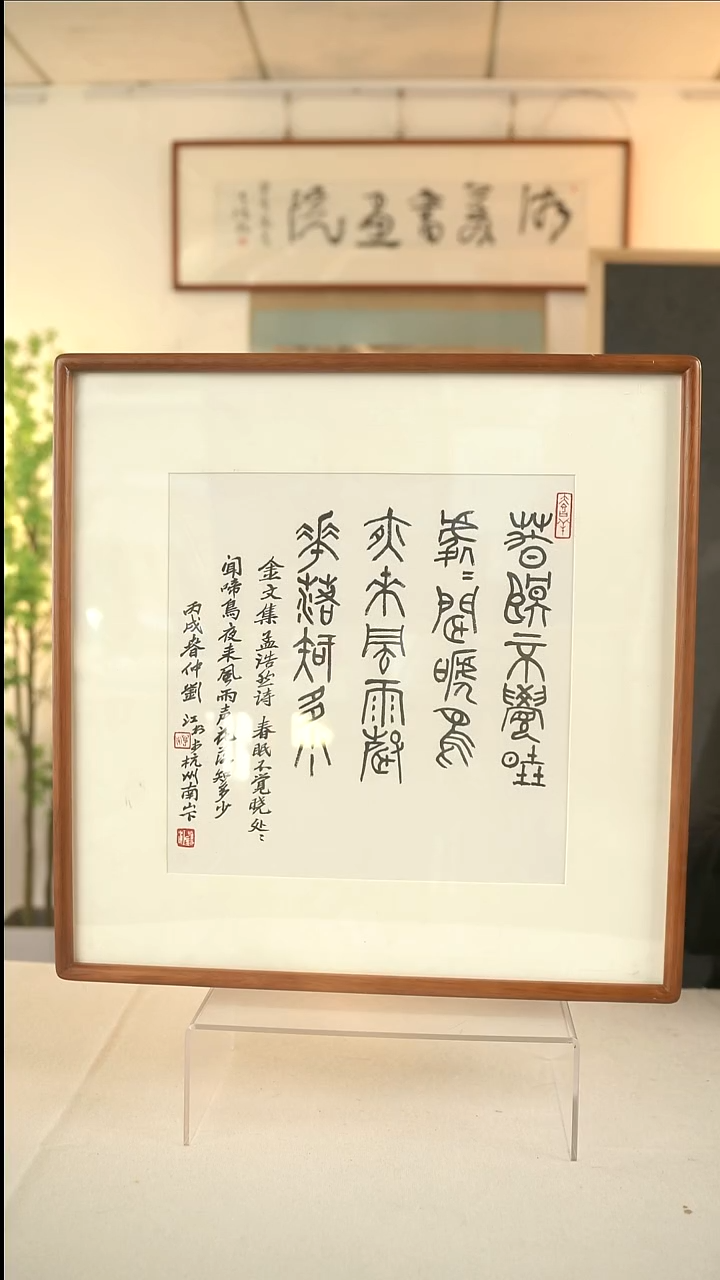 美書畫院
春眠不覺曉
處〻聞啼鳥
夜來風雨聲
華落知多少
金文集孟浩然诗 春眠不覺晓处〻
闻啼鳥夜来風雨声花落知多少
丙戌春仲劉江书于杭州南山下